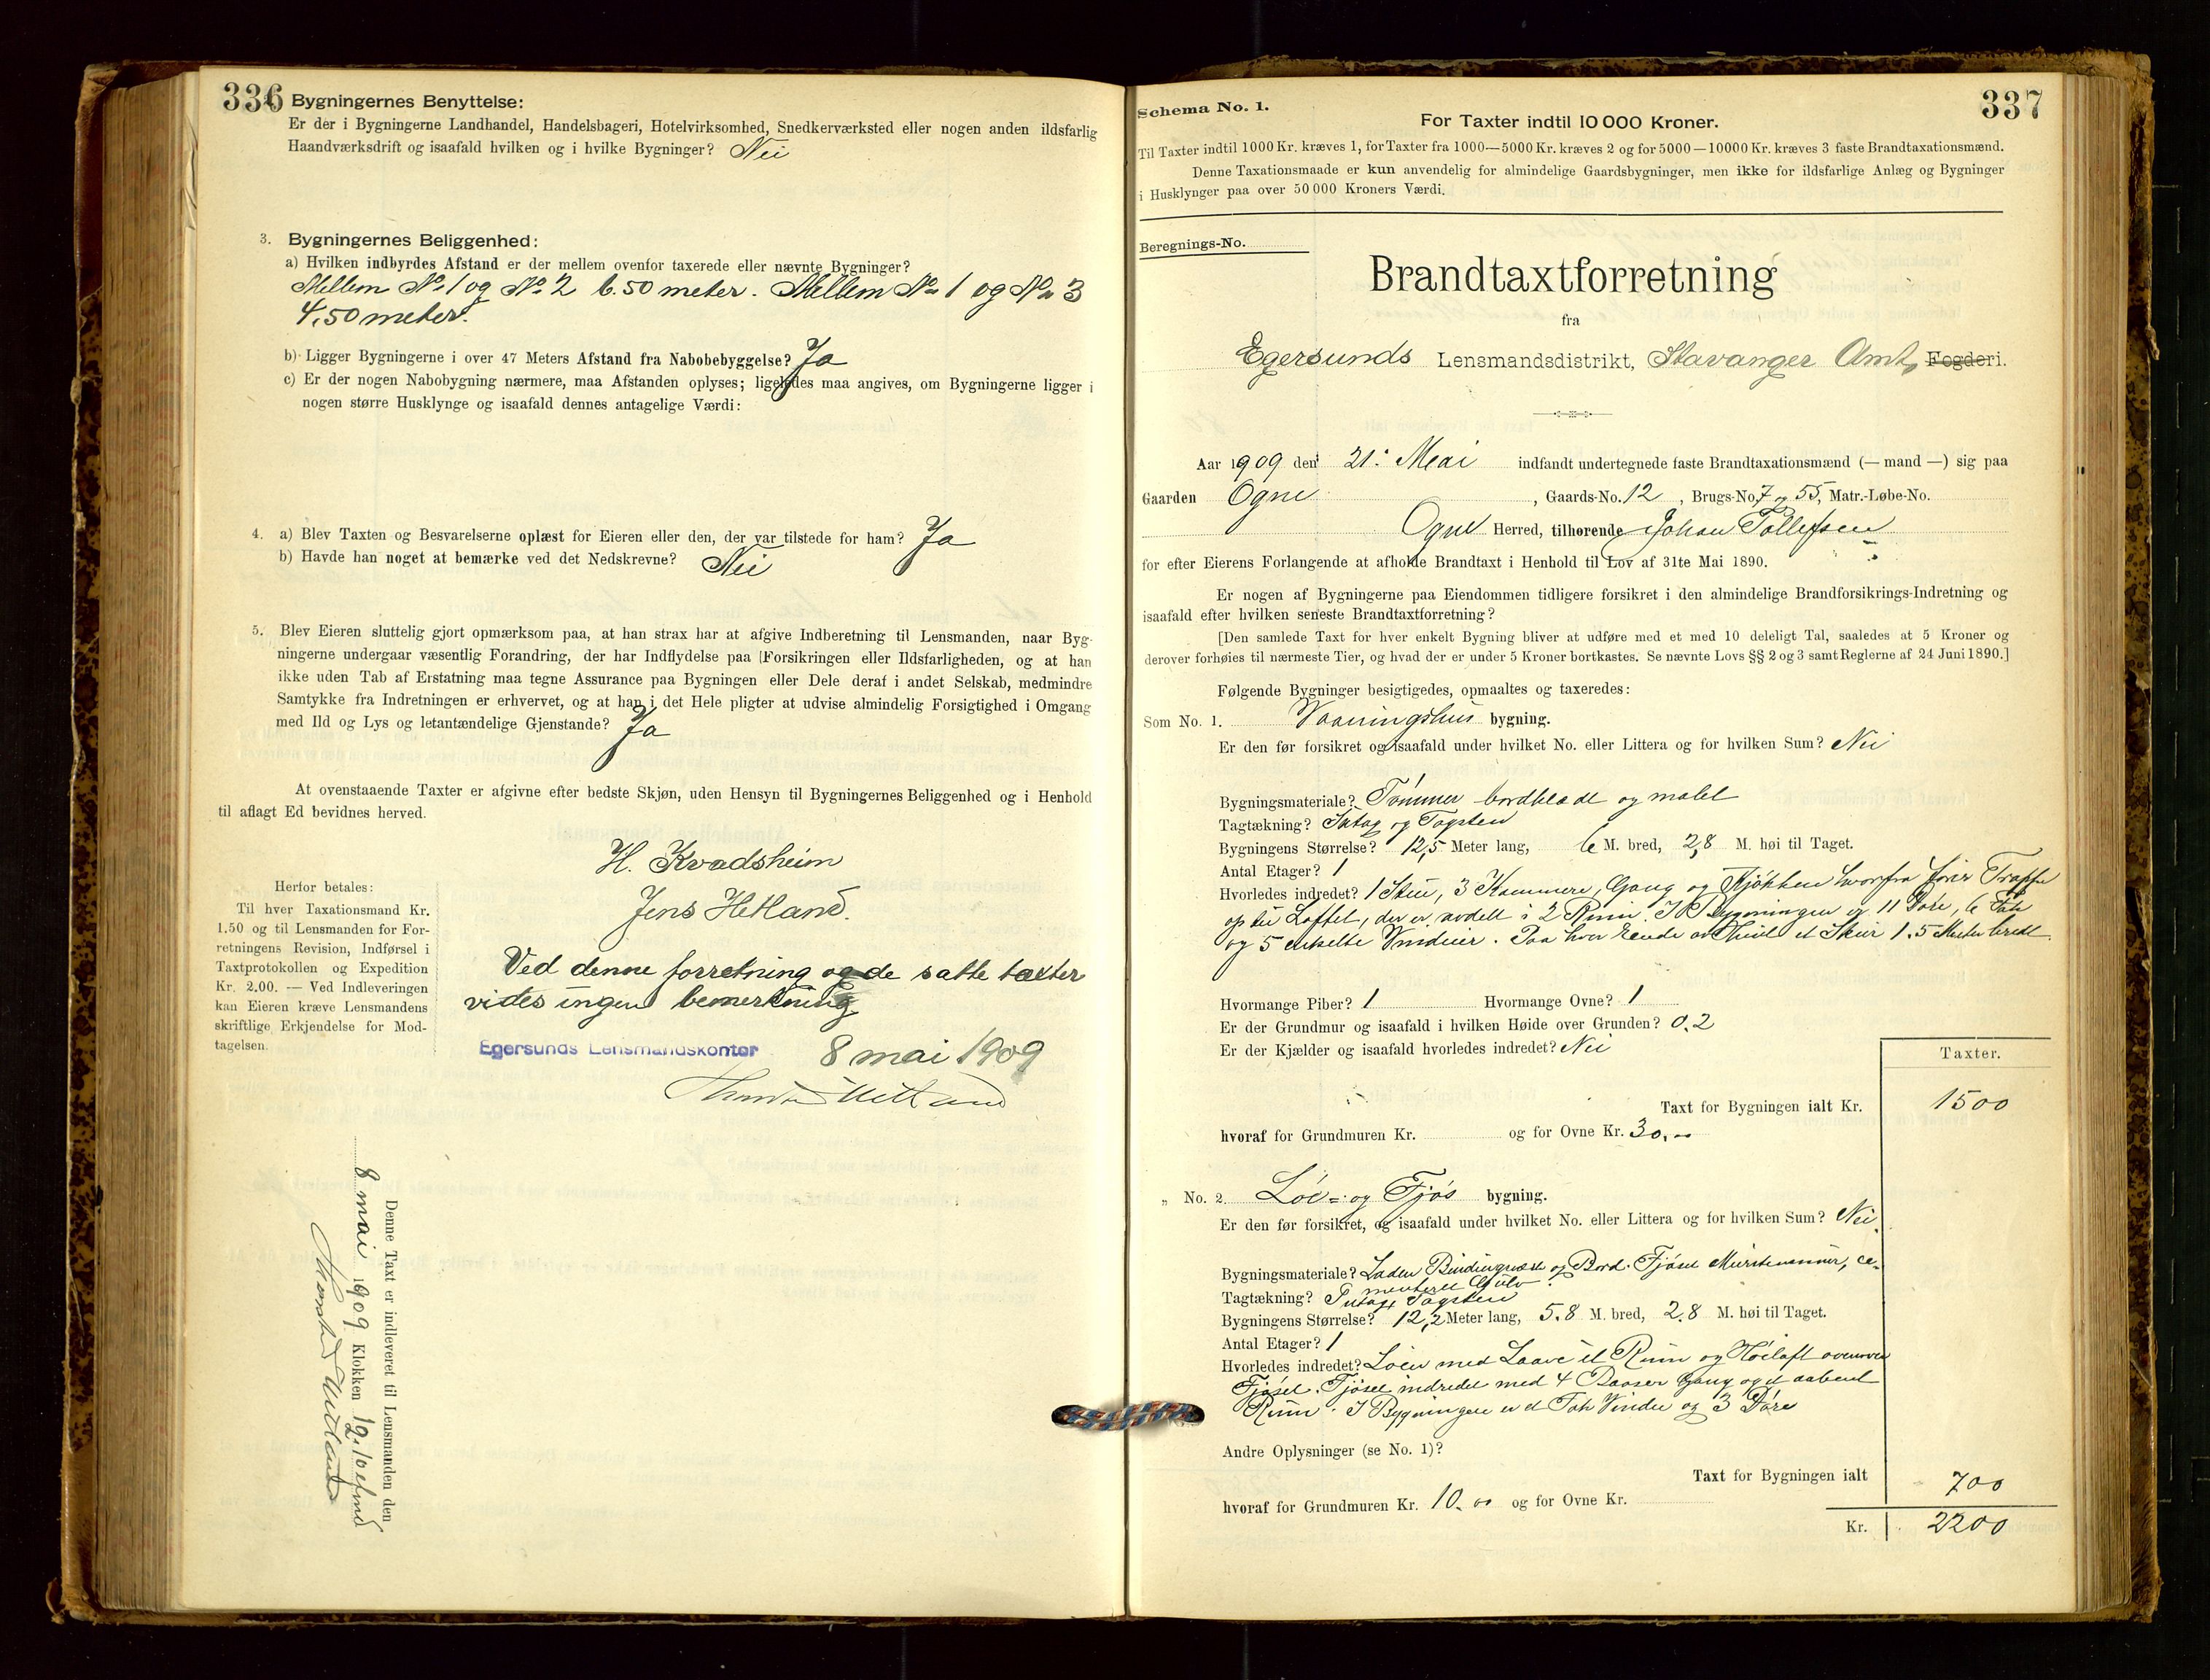 336 Bygningernes Benyttelse:
Er der i Bygningerne Landhandel, Handelsbageri, Hotelvirksomhed, Snedkerværksted eller nogen anden ildsfarlig
Haandværksdrift og isaafald hvilken og i hvilke Bygninger? Nei
3. Bygningernes Beliggenhed:
a) Hvilken indbyrdes Afstand er der mellem ovenfor taxerede eller nævnte Bygninger?
Mellem No 1 og No 2 6.50 meter. Mellem No 1 og No 3
4,50 meter.
b) Ligger Bygningerne i over 47 Meters Afstand fra Nabobebyggelse? Ja
c) Er der nogen Nabobygning nærmere, maa Afstanden oplyses; ligeledes maa angives, om Bygningerne ligger i
nogen større Husklynge og isaafald dennes antagelige Værdi:
4. a) Blev Taxten og Besvarelserne oplæst for Eieren eller den, der var tilstede for ham? Ja
b) Havde han noget at bemærke ved det Nedskrevne? Nei
5. Blev Eieren sluttelig gjort opmærksom paa, at han strax har at afgive Indberetning til Lensmanden, naar Byg-
ningerne undergaar væsentlig Forandring, der har Indflydelse paa Forsikringen eller Ildsfarligheden, og at han
ikke uden Tab af Erstatning maa tegne Assurance paa Bygningen eller Dele deraf i andet Selskab, medmindre
Samtykke fra Indretningen er erhvervet, og at han i det Hele pligter at udvise almindelig Forsigtighed i Omgang
med Ild og Lys og letantændelige Gjenstande? Ja
At ovenstaaende Taxter er afgivne efter bedste Skjøn, uden Hensyn til Bygningernes Beliggenhed og i Henhold
til aflagt Ed bevidnes herved.
H. Kvadsheim
Jens Hetland.
Herfor betales:
Til hver Taxationsmand Kr.
1.50 og til Lensmanden for For-
retningens Revision, Indførsel i
Taxtprotokollen og Expedition
Kr. 2.00. — Ved Indleveringen
kan Eieren kræve Lensmandens
skriftlige Erkjendelse for Mod-
tagelsen.
Ved denne forretning og de satte taxter
vides ingen bemerkning
Egersunds Lensmandskontor 8 mai 1909
Denne Taxt er indleveret til Lensmanden den
8 mai 1909 Klokken 12,10 efmd
Schema No. 1.
337
For Taxter indtil 10 000 Kroner.
Til Taxter indtil 1000 Kr. kræves 1, for Taxter fra 1000—5000 Kr. kræves 2 og for 5000—10000 Kr. kræves 3 faste Brandtaxationsmænd.
Denne Taxationsmaade er kun anvendelig for almindelige Gaardsbygninger, men ikke for ildsfarlige Anlæg og Bygninger
i Husklynger paa over 50 000 Kroners Værdi.
Beregnings-No.
Brandtaxtforretning
fra
Egersunds Lensmandsdistrikt, Stavanger Amt, Fogderi.
Aar 1909 den 21. Mai indfandt undertegnede faste Brandtaxationsmænd (— mand —) sig paa
Gaarden Ogne, Gaards-No. 12, Brugs-No. 7 og 55, Matr.-Løbe-No.
Ogne Herred, tilhørende Johan Tollefsen
for efter Eierens Forlangende at afholde Brandtaxt i Henhold til Lov af 31te Mai 1890.
Er nogen af Bygningerne paa Eiendommen tidligere forsikret i den almindelige Brandforsikrings-Indretning og
isaafald efter hvilken seneste Brandtaxtforretning?
[Den samlede Taxt for hver enkelt Bygning bliver at udføre med et med 10 deleligt Tal, saaledes at 5 Kroner og
derover forhøies til nærmeste Tier, og hvad der er under 5 Kroner bortkastes. Se nævnte Lovs §§ 2 og 3 samt Reglerne af 24 Juni 1890.]
Følgende Bygninger besigtigedes, opmaaltes og taxeredes:
Som No. 1. Vaaningshus bygning.
Er den før forsikret og isaafald under hvilket No. eller Littera og for hvilken Sum? Nei
Bygningsmateriale? Tømmer bordklædt og malet
Tagtækning? Sutag og Tagsten
Bygningens Størrelse? 12,5 Meter lang, 6 M. bred, 2,8 M. høi til Taget.
Antal Etager? 1
Hvorledes indredet? 1 Stue, 3 Kammere, Gang og Kjøkken hvorfra fører Trappe
op til Loftet, der er avdelt i 2 Rum. I Bygningen er 11 Døre, 6 Fah
og 5 enkelte Vinduer. Paa hver Ende av Huset et Skur 1.5 Meter bredt.
Hvormange Piber? 1 Hvormange Ovne? 1
Er der Grundmur og isaafald i hvilken Høide over Grunden? 0.2
Er der Kjælder og isaafald hvorledes indredet? Nei
Taxter.
Taxt for Bygningen ialt Kr. 1500
hvoraf for Grundmuren Kr. og for Ovne Kr. 30.-
„ No. 2. Løe- og Fjøs bygning.
Er den før forsikret, og isaafald under hvilket No. eller Littera og for hvilken Sum? Nei.
Bygningsmateriale? Laden Bindingværk og Bord. Fjøset Murstensmur, ce-
menteret Gulv.
Tagtækning? Sutag Tagsten
Bygningens Størrelse? 12,2 Meter lang, 5.8 M. bred, 2.8 M. høi til Taget.
Antal Etager? 1
Hvorledes indredet? Løen med Laave et Rum og Høeloft ovenover
Fjøset. Fjøset indredet med 4 Baaser Gang og et aabent
Rum. I Bygningen er et Fah Vindu og 3 Døre
Andre Oplysninger (se No. 1)?
Taxt for Bygningen ialt 700
hvoraf for Grundmuren Kr. 10.00 og for Ovne Kr.
Kr. 2200